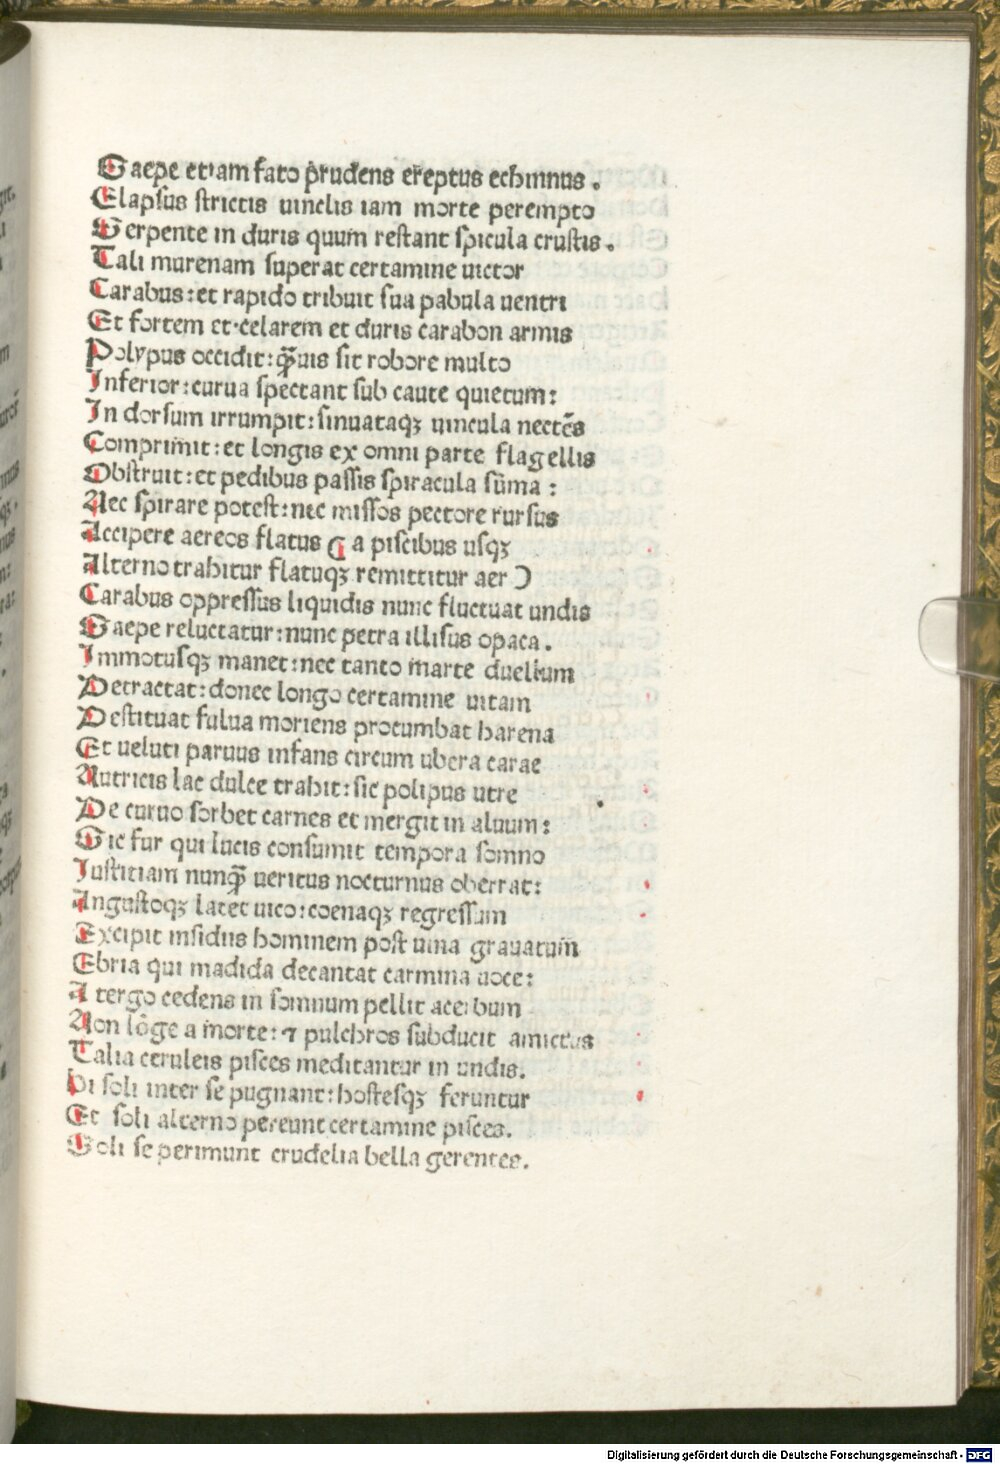 Saepe etiam fato prudens ereptus echinnus.
Elapsus strictis uinclis iam morte perempto
Serpente in duris quum restant spicula crustis.
Tali murenam superat certamine uictor
Carabus: et rapido tribuit sua pabula uentri
Et fortem et celarem et duris carabon armis
Polypus occidit: qȝuis sit robore multo
Inferior: curua spectant sub caute quietum:
In dorsum irrumpit: sinuataqȝ uincula nectēs
Comprimit: et longis ex omni parte flagellis
Obstruit: et pedibus passis spiracula sūma:
Nec spirare potest: nec missos pectore rursus
Accipere aereos flatus ( a piscibus usqȝ
Alterno trahitur flatuqȝ remittitur aer )
Carabus oppressus liquidis nunc fluctuat undis
Saepe reluctatur: nunc petra illisus opaca.
Immotusqȝ manet: nec tanto marte duellum
Detractat: donec longo certamine uitam
Destituat fulua moriens procumbat harena
Et ueluti paruus infans circum ubera carae
Nutricis lac dulce trahit: sic polipus utre
De curuo sorbet carnes et mergit in aluum:
Sic fur qui lucis consumit tempora somno
Iustitiam nunqȝ ueritus nocturnus oberrat:
Angustoqȝ latet uico: coenaqȝ regressum
Excipit insidiis hominem post uina grauatum
Ebria qui madida decantat carmina uoce:
A tergo cedens in somnum pellit acerbum
Non lōge a morte: ⁊ pulchros subducit amictus
Talia ceruleis pisces meditantur in undis.
Hi soli inter se pugnant: hostesqȝ feruntur
Et soli alterno pereunt certamine pisces.
Soli se perimunt crudelia bella gerentes.
Digitalisierung gefördert durch die Deutsche Forschungsgemeinschaft - DFG